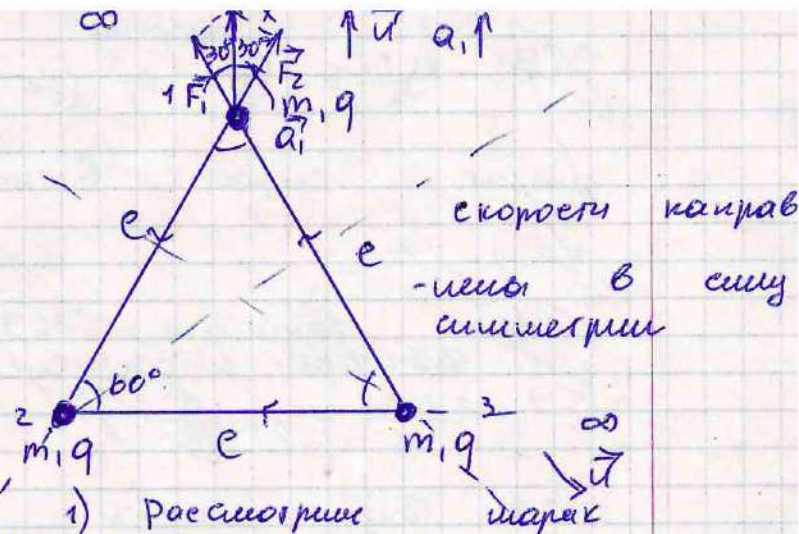 ∞ x ↑ u⃗ a₁↑
30° 30°
1 F⃗₁ F⃗₂
m, q
a⃗₁
e e
скорости направ
-лены в силу
симметрии
60°
2 3
m, q e m, q ∞
u⃗
1) Рассмотрим шарик